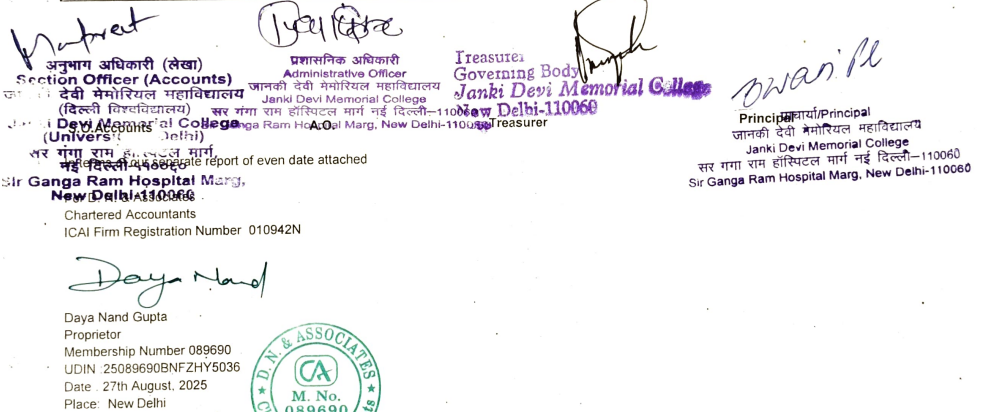 Manpreet
अनुभाग अधिकारी (लेखा)
Section Officer (Accounts)
जानकी देवी मेमोरियल महाविद्यालय
(दिल्ली विश्वविद्यालय)
Janki Devi Memorial College
(University Delhi)
S.O.Accounts
सर गंगा राम हॉस्पिटल मार्ग,
नई दिल्ली-११००६०
Sir Ganga Ram Hospital Marg,
New Delhi-110060
प्रशासनिक अधिकारी
Administrative Officer
जानकी देवी मेमोरियल महाविद्यालय
Janki Devi Memorial College
सर गंगा राम हॉस्पिटल मार्ग नई दिल्ली-110060
Ganga Ram Hospital Marg, New Delhi-110060
A.O.
Treasurer
Governing Body
Janki Devi Memorial College
New Delhi-110060
Treasurer
Principal
प्राचार्या/Principal
जानकी देवी मेमोरियल महाविद्यालय
Janki Devi Memorial College
सर गंगा राम हॉस्पिटल मार्ग नई दिल्ली-110060
Sir Ganga Ram Hospital Marg, New Delhi-110060
separate report of even date attached
For D. N. & Associates
Chartered Accountants
ICAI Firm Registration Number 010942N
Daya Nand
Daya Nand Gupta
Proprietor
Membership Number 089690
UDIN :25089690BNFZHY5036
Date . 27th August, 2025
Place: New Delhi
D. N. & ASSOCIATES
CA
M. No.
089690